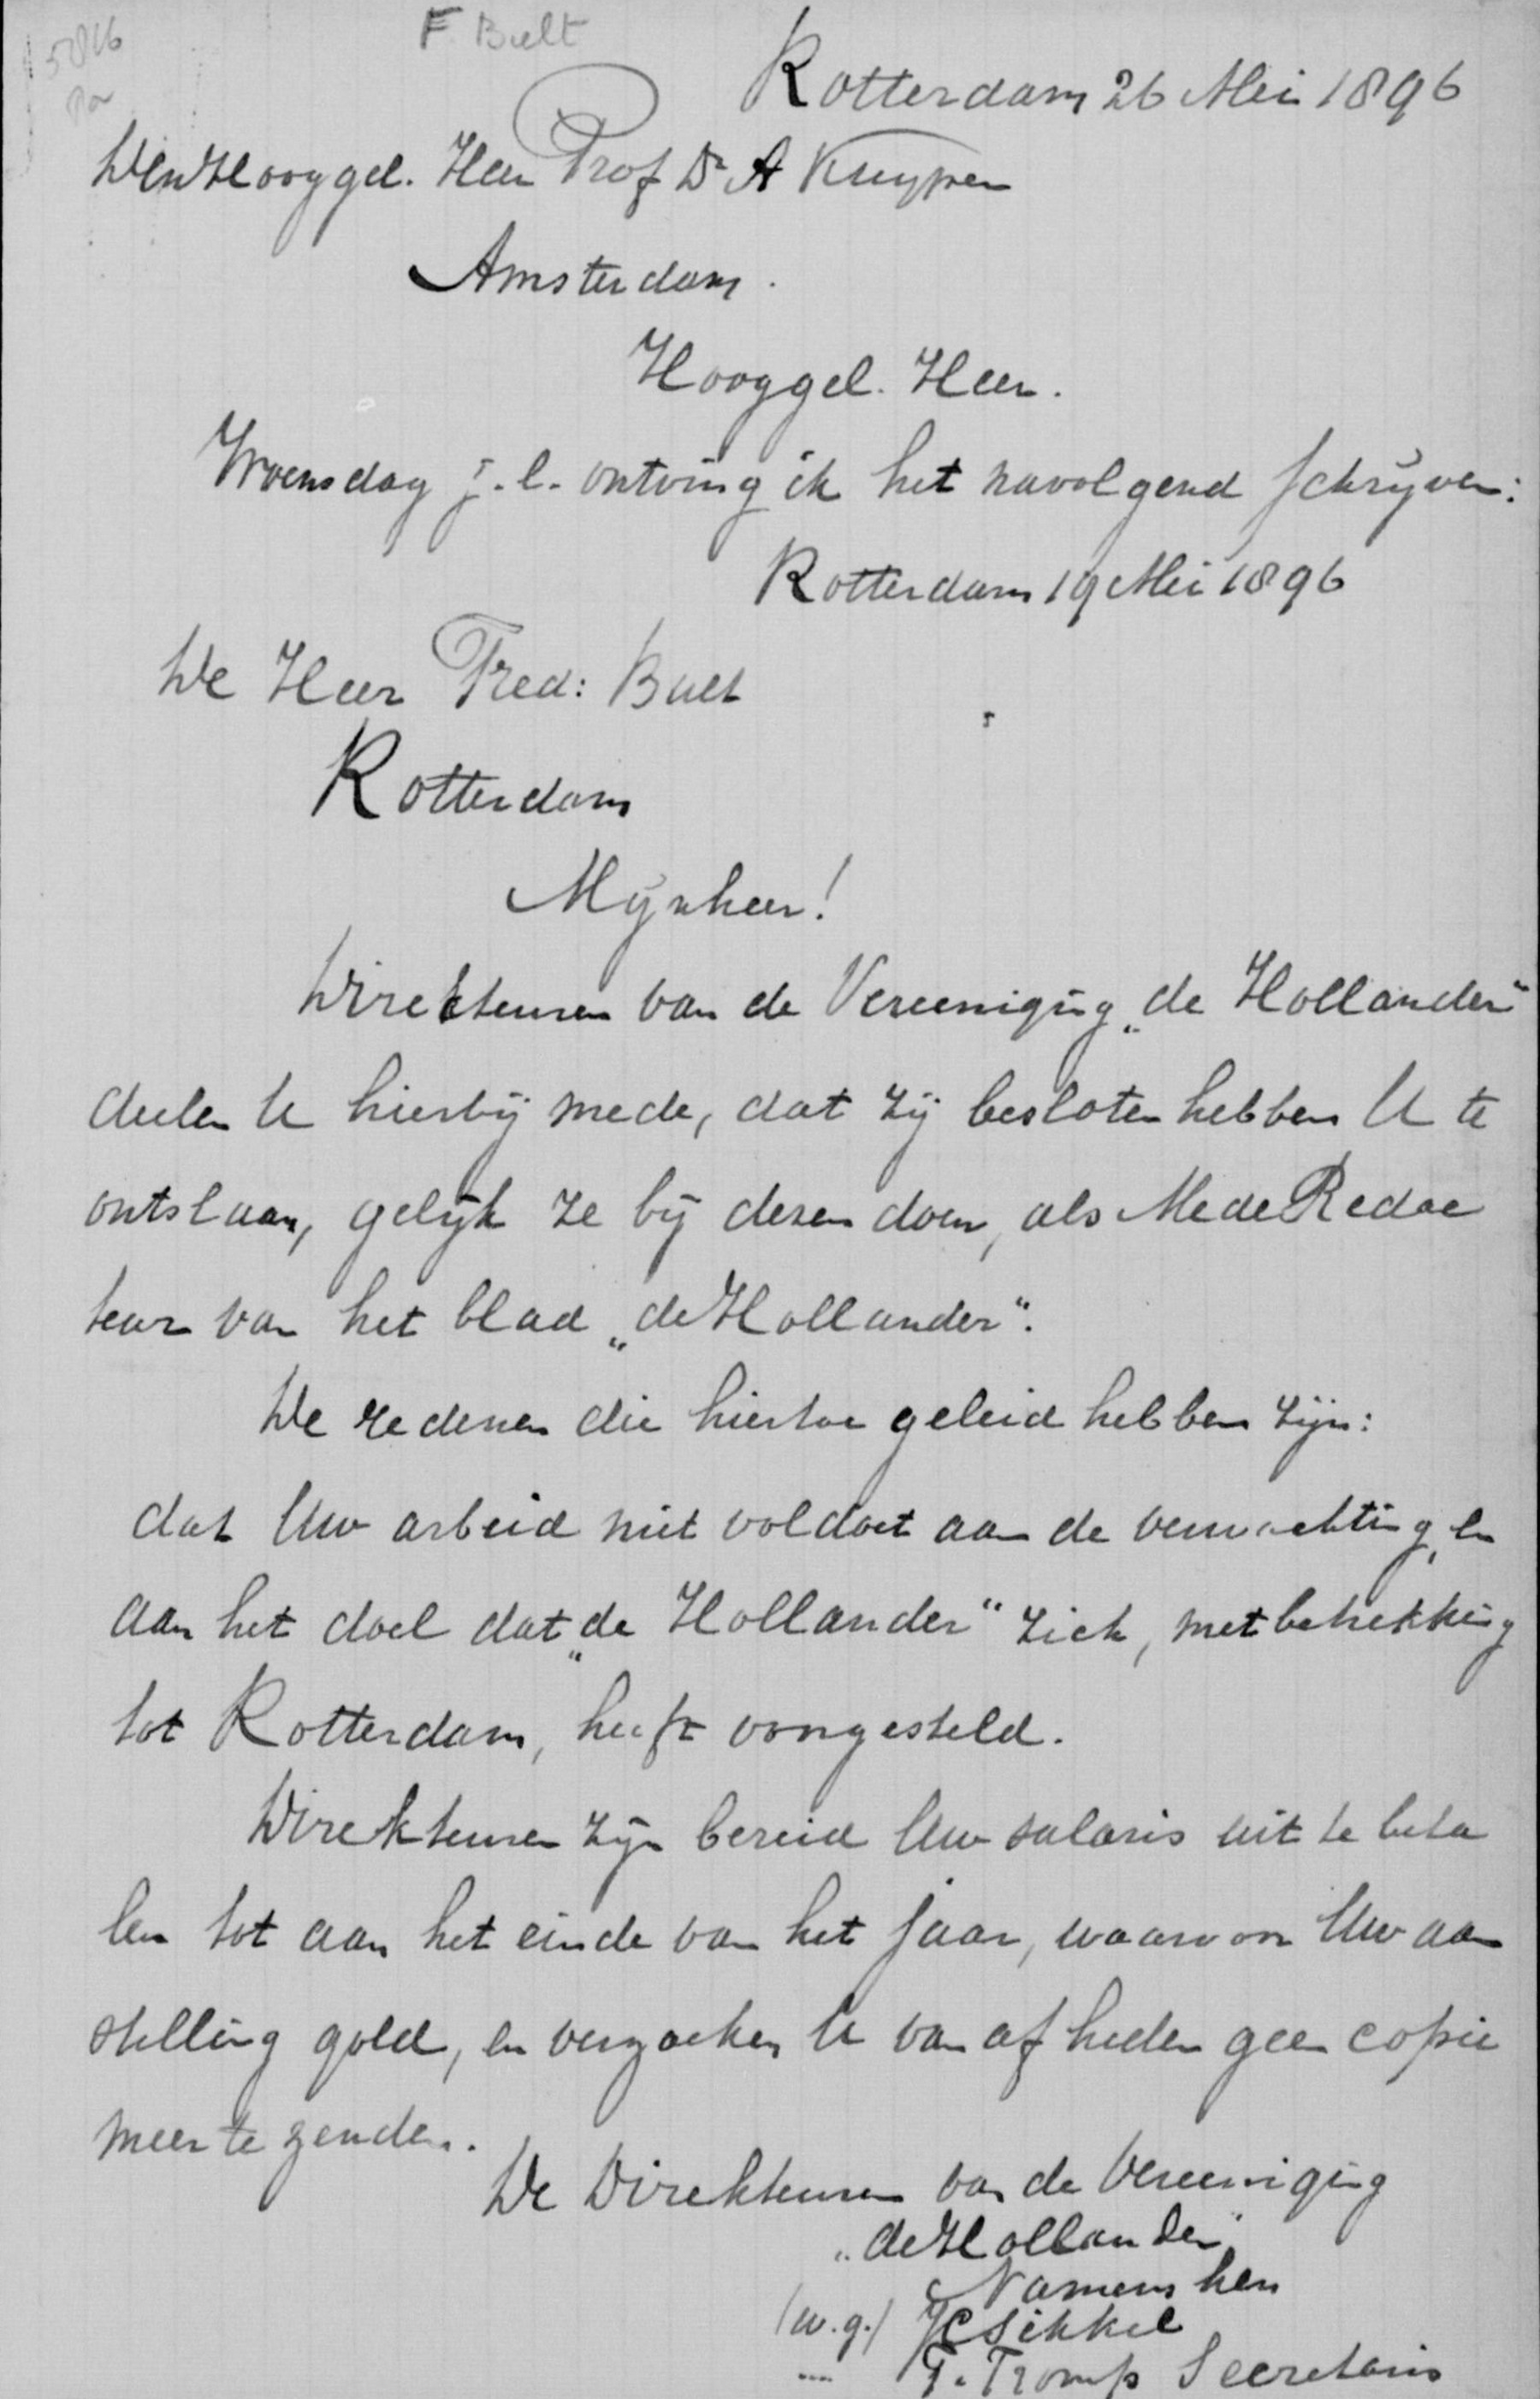 5816
F. Bult
Rotterdam 26 Mei 1896
den Hooggel. Heer Prof Dr A Kuyper
Amsterdam.
Hooggel. Heer.
Woensdag j.l. ontving ik het navolgend schrijven:
Rotterdam 19 Mei 1896
De Heer Fred: Bult
Rotterdam
Mijnheer!
Direkteuren van de Vereeniging „de Hollander"
deelen U hierbij mede, dat zij besloten hebben U te
ontslaan, gelijk ze bij dezen doen, als Mede Redac
teur van het blad „de Hollander".
De redenen die hiertoe geleid hebben zijn:
dat Uw arbeid niet voldoet aan de verwachting, en
aan het doel dat „de Hollander" zich, met betrekking
tot Rotterdam, heeft voorgesteld.
Direkteuren zijn bereid Uw salaris uit te beta
len tot aan het einde van het jaar, waarvoor Uw aan
stelling gold, en verzoeken U van af heden geen copie
meer te zenden.
De Direkteuren van de Vereeniging
„de Hollander"
Namens hen
(w.g.) JC Sikkel
" F. Tromp Secretaris